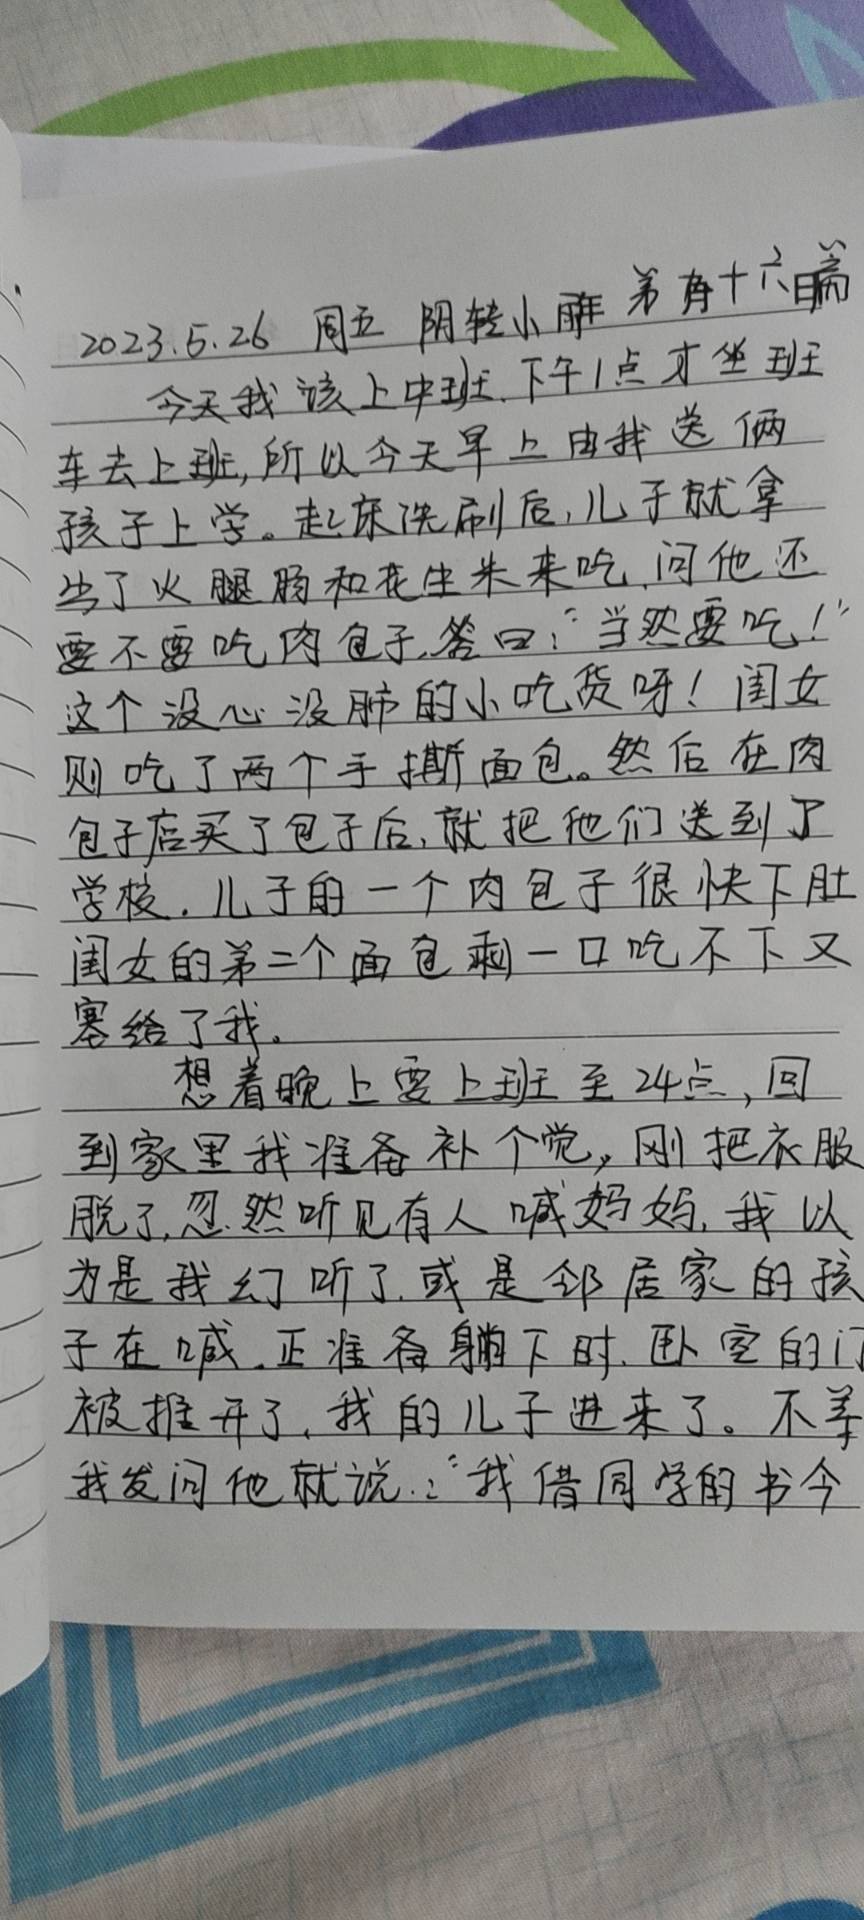 2023.5.26 周五 阴转小雨 第 十六篇
今天我该上中班,下午1点才坐班
车去上班,所以今天早上由我送俩
孩子上学。起床洗刷后,儿子就拿
出了火腿肠和花生米来吃,问他还
要不要吃肉包子,答曰:“当然要吃!”
这个没心没肺的小吃货呀!闺女
则吃了两个手撕面包。然后在肉
包子店买了包子后,就把他们送到了
学校.儿子的一个肉包子很快下肚
闺女的第二个面包剩一口吃不下又
塞给了我。
想着晚上要上班至24点,回
到家里我准备补个觉,刚把衣服
脱了,忽然听见有人喊妈妈,我以
为是我幻听了.或是邻居家的孩
子在喊.正准备躺下时.卧室的门
被推开了,我的儿子进来了。不等
我发问他就说:“我借同学的书今